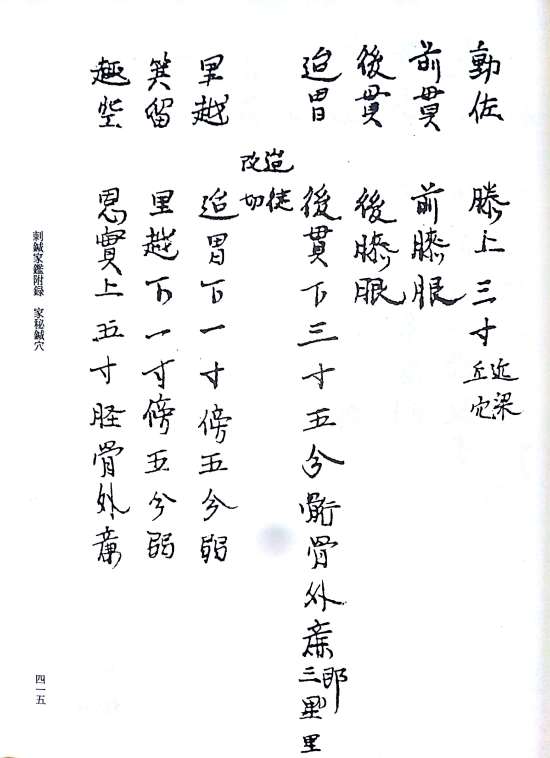 動佐 膝上三寸 近梁丘穴
前貫 前膝眼
後貫 後膝眼
迨胃 後貫下三寸五分 䯒骨外廉 即三里
改造
里越 迨胃下一寸 傍五分弱
箕留 里越下一寸 傍五分弱
趣 上五寸 胫骨外廉
刺鍼家鑑附録 家秘鍼穴
四一五